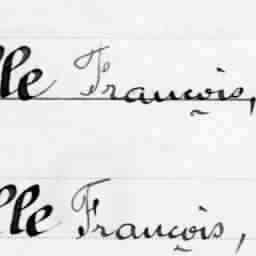 lle François,
lle François,